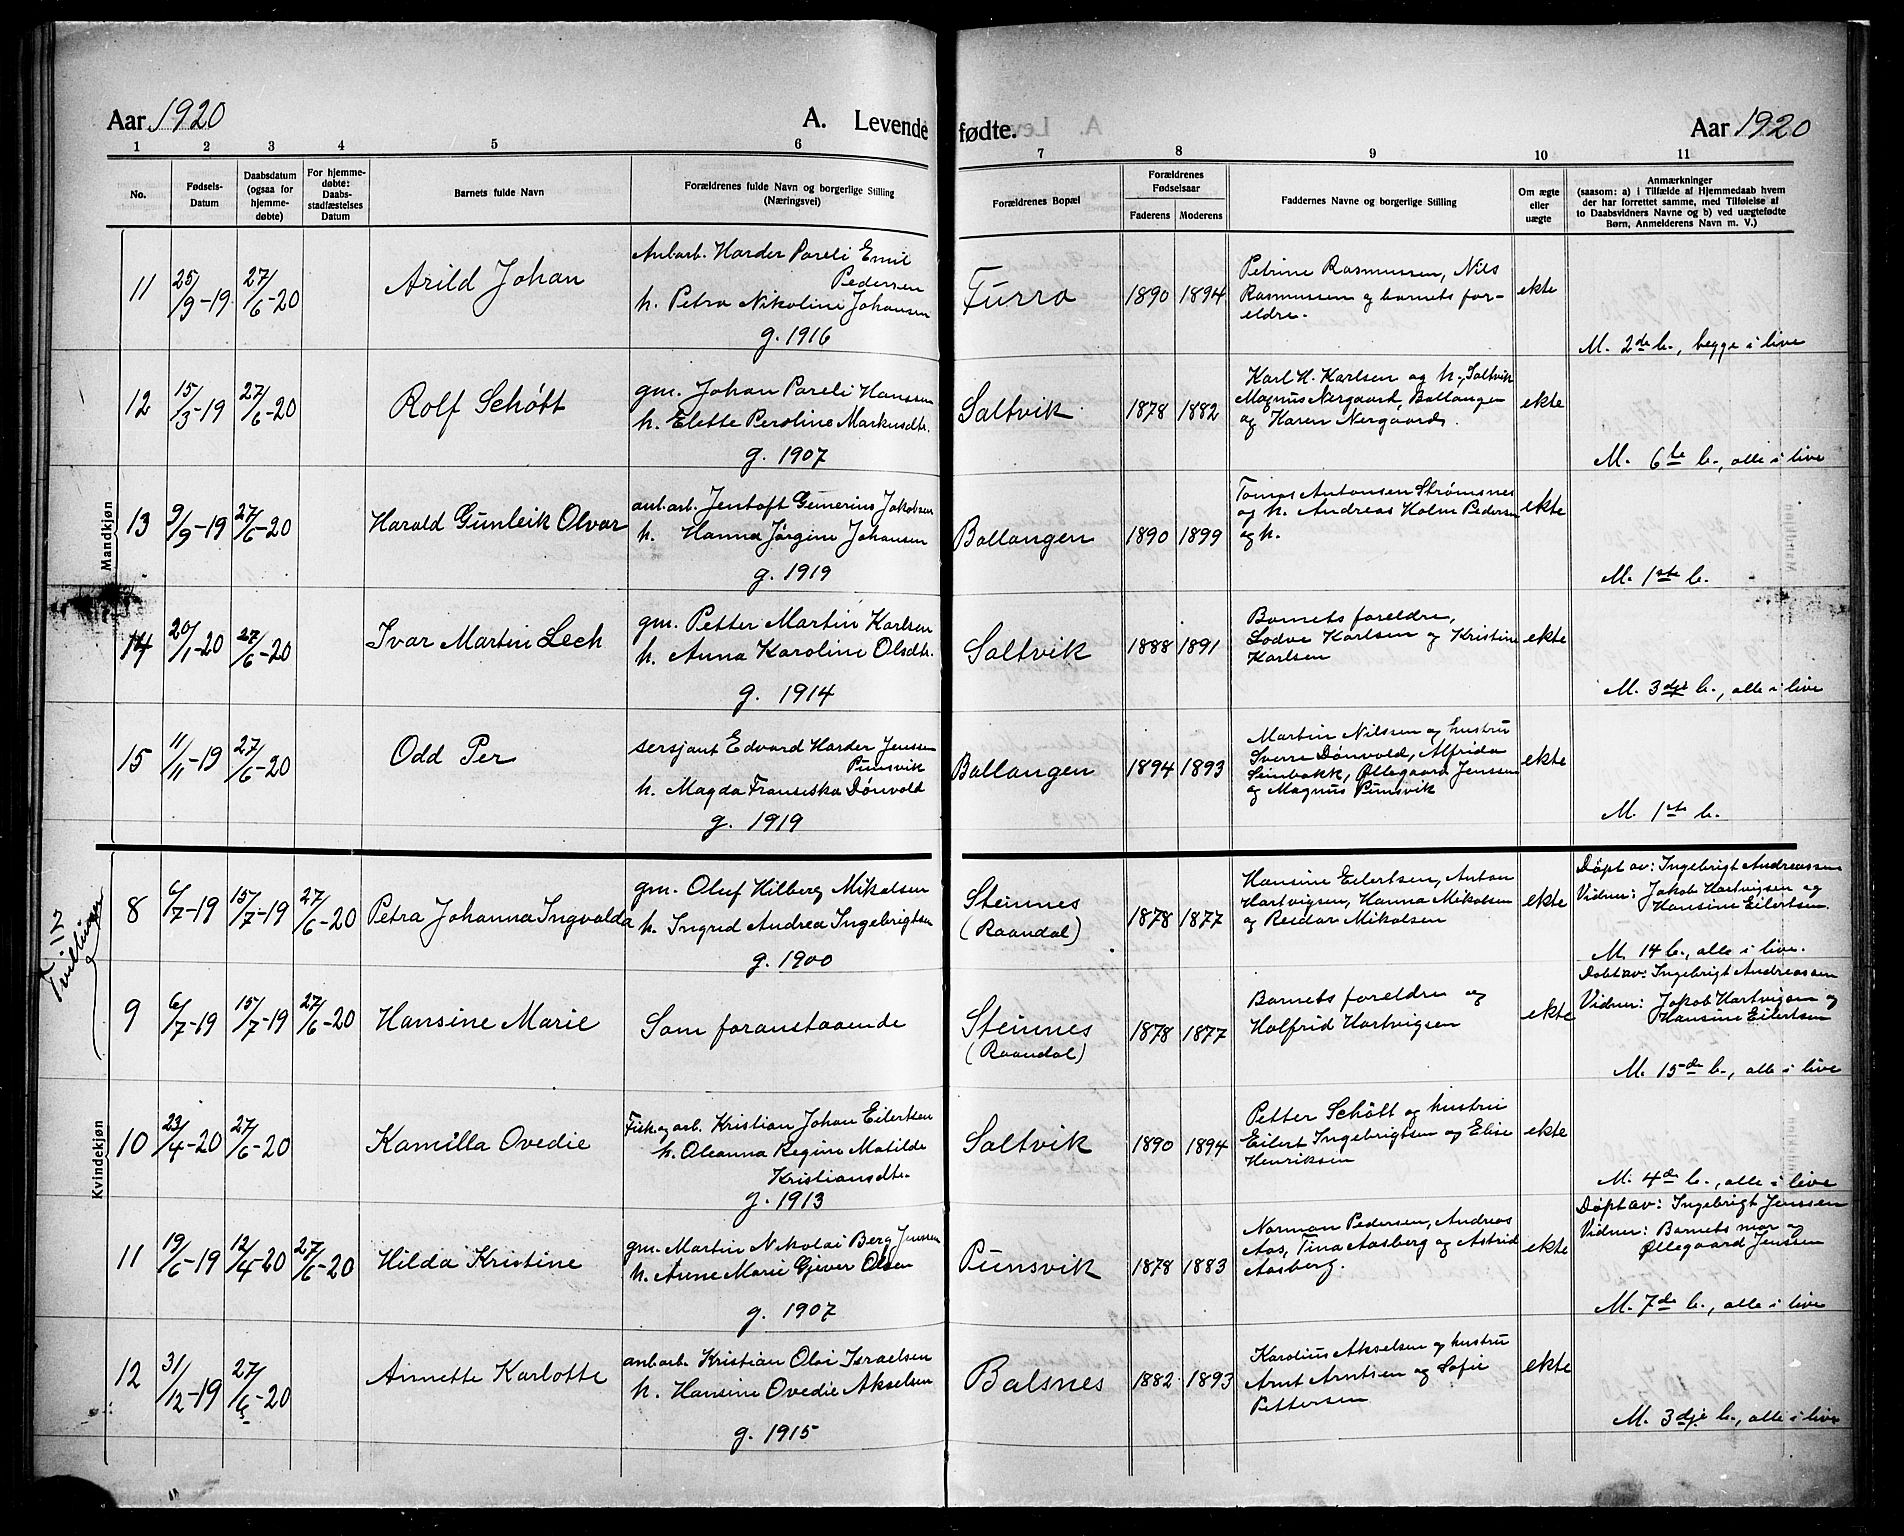 Aar 1920
A. Levende fødte.
Aar 1920
1 2 3 4 5 6 7 8 9 10 11
No.
Fødsels-
Datum
Daabsdatum
(ogsaa for
hjemme-
døbte)
For hjemme-
døbte:
Daabs-
stadfæstelses
Datum
Barnets fulde Navn
Forældrenes fulde Navn og borgerlige Stilling
(Næringsvei)
Forældrenes Bopæl
Forældrenes
Fødselsaar
Faderens Moderens
Faddernes Navne og borgerlige Stilling
Om ægte
eller
uægte
Anmærkninger
(saasom: a) i Tilfælde af Hjemmedaab hvem
der har forrettet samme, med Tilføielse af
to Daabsvidners Navne og b) ved uægtefødte
Børn, Anmelderens Navn m. V.)
Mandkjøn
11
25/9-19
27/6-20
Arild Johan
Anl.arb. Harder Pareli Emil
Pedersen
h. Petra Nikoline Johansen
g. 1916
Furra
1890 1894
Petrine Rasmussen, Nils
Rasmussen og barnets for-
eldre.
ekte
M. 2de b., begge i live
12
15/3-19
27/6-20
Rolf Schøtt
gm. Johan Pareli Hanssen
h. Elette Peroline Markusdtr.
g. 1907
Saltvik
1878 1882
Karl H. Karlsen og h., Saltvik
Magnus Nergaard, Ballangen
og Karen Nergaard.
ekte
M. 6te b., alle i live
13
9/9-19
27/6-20
Harald Gunleik Olvar
anl.arb. Jentoft Gunerius Jakobsen
h. Hanna Jørgine Johansen
g. 1919
Ballangen
1890 1899
Tomas Antonsen Strømsnes
og h. Andreas Holm Pedersen
og h.
ekte
M. 1ste b.
14
20/1-20
27/6-20
Ivar Martin Lech
gm. Petter Martin Karlsen
h. Anna Karoline Olsdtr.
g. 1914
Saltvik
1888 1891
Barnets foreldre,
Lodve Karlsen og Kristine
Karlsen
ekte
M. 3dje b., alle i live
15
11/11-19
27/6-20
Odd Per
sersjant Edvard Harder Jenssen
Punsvik
h. Magda Fransiska Dønvold
g. 1919
Ballangen
1894 1893
Martin Nilsen og hustru
Sverre Dønvold, Alfrida
Simbakk, Øllegaard Jenssen
og Magnus Punsvik
ekte
M. 1ste b.
Tvillinger
Kvindekjøn
8
6/7-19
15/7-19
27/6-20
Petra Johanna Ingvalda
gm. Oluf Hilberg Mikalsen
h. Ingrid Andrea Ingebrigtsen
g. 1900
Steinnes
(Raandal)
1878 1877
Hansine Eilertsen, Anton
Hartvigsen, Hanna Mikalsen
og Reidar Mikalsen
ekte
Døpt av: Ingebrigt Andreassen
Vidner: Jakob Hartvigsen og
Hansine Eilertsen.
M. 14 b., alle i live.
9
6/7-19
15/7-19
27/6-20
Hansine Marie
Som foranstaaende
Steinnes
(Raandal)
1878 1877
Barnets foreldre og
Halfrid Hartvigsen
ekte
Døbt av: Ingebrigt Andreassen
Vidner: Jakob Hartvigsen og
Hansine Eilertsen
M. 15de b., alle i live
10
23/4-20
27/6-20
Kamilla Ovedie
Fisk. og arb. Kristian Johan Eilertsen
h. Oleanna Regine Matilde
Kristiansdtr.
g. 1913
Saltvik
1890 1894
Petter Schøtt og hustru
Eilert Ingebrigtsen og Elise
Henriksen
ekte
M. 4de b., alle i live
11
19/6-19
12/4-20
27/6-20
Hilda Kristine
gm. Martin Nikolai Berg Jenssen
h. Arene Marie Gjever Olsen
g. 1907
Punsvik
1878 1883
Norman Pedersen, Andreas
Aas, Tina Aasberg og Astrid
Aasberg.
ekte
Døpt av: Ingebrigt Jenssen
Vidner: Barnets mor og
Øllegaard Jenssen
M. 7de b., alle i live
12
31/12-19
27/6-20
Annette Karlotte
anl.arb. Kristian Olai Israelsen
h. Hansine Ovedie Akselsen
g. 1915
Balsnes
1882 1893
Karolius Akselsen og hustru
Arnt Arntsen og Sofie
Pettersen
ekte
M. 3dje b., alle i live